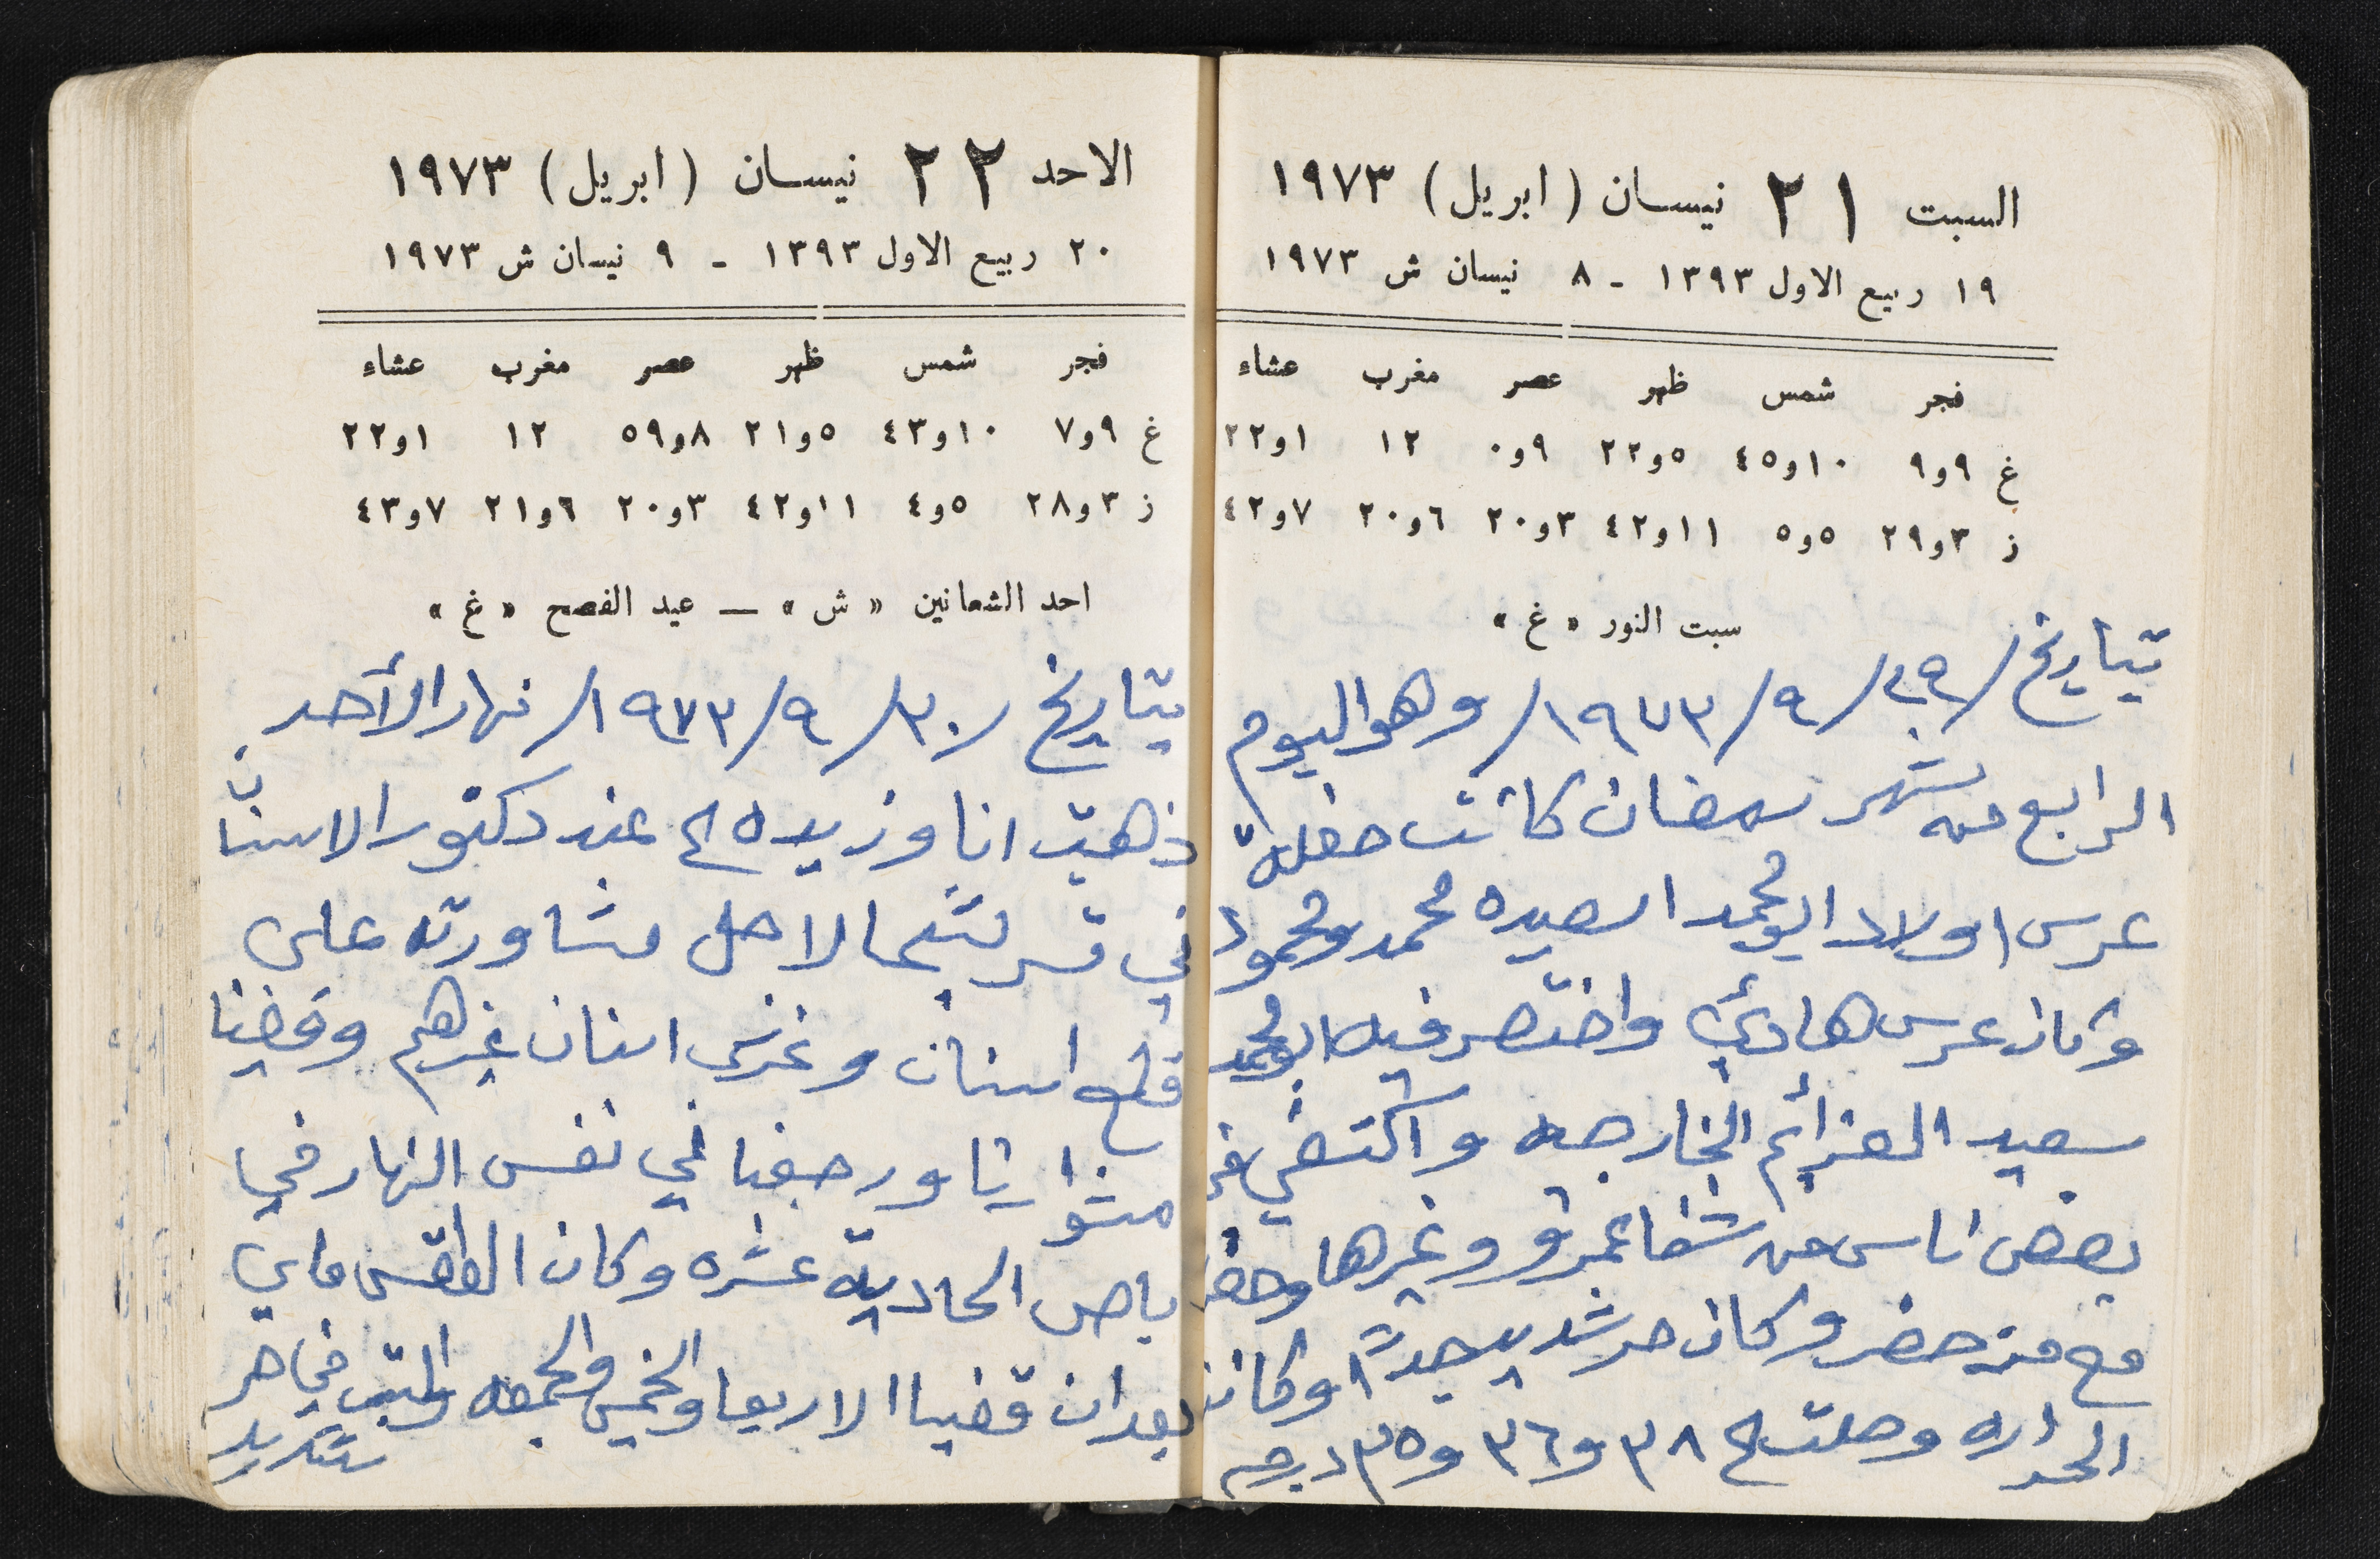 السبت ٢١ نيسان (ابريل) ١٩٧٣
١٩ ربيع الاول ١٣٩٣ - ٨ نيسان ش ١٩٧٣
فجر شمس ظهر عصر مغرب عشاء
غ ٩و٩ ١٠و٤٥ ٥و٢٢ ٩و٠ ١٢ ١و٢٢
ز ٣و٢٩ ٥و٥ ١١و٤٢ ٣و٢٠ ٦و٢٠ ٧و٤٢
سبت النور «غ»
بتاريخ /٢٩/٩/١٩٧٣/ وهو اليوم
الرابع من شهر رمضان كانت حفلة
عرس اولاد ابو محمد اسعيده محمد ومحمود
وكان عرس هادئ واختصر فيه ابو محمد
سعيد العزائم الخارجيه واكتفي في
بعض اناس من شفاعمرو وغيرها وحضر
مع من حضر وكان حر شديد جداً وكانت
الحراره وصلت ٣٨ و٣٦ و٣٥ درجه
الاحد ٢٢ نيسان (ابريل) ١٩٧٣
٢٠ ربيع الاول ١٣٩٣ - ٩ نيسان ش ١٩٧٣
فجر شمس ظهر عصر مغرب عشاء
غ ٩و٧ ١٠و٤٣ ٥و٢١ ٨و٥٩ ١٢ ١و٢٢
ز ٣و٢٨ ٥و٤ ١١و٤٢ ٣و٢٠ ٦و٢١ ٧و٤٣
احد الشعانين «ش» — عيد الفصح «غ»
بتاريخ /٣٠/٩/١٩٧٣/ نهار الأحد
ذهبت انا وزيده عند دكتور الاسنان
في لاجل مشاورته على
قلع اسنان وغرس اسنان غيرهم وقضينا
ورجعنا في نفس النهار في
باص الحادية عشره وكان الطقس
بعد ان قضينا الاربعا والخميس والجمعه والسبت في حر
شديد